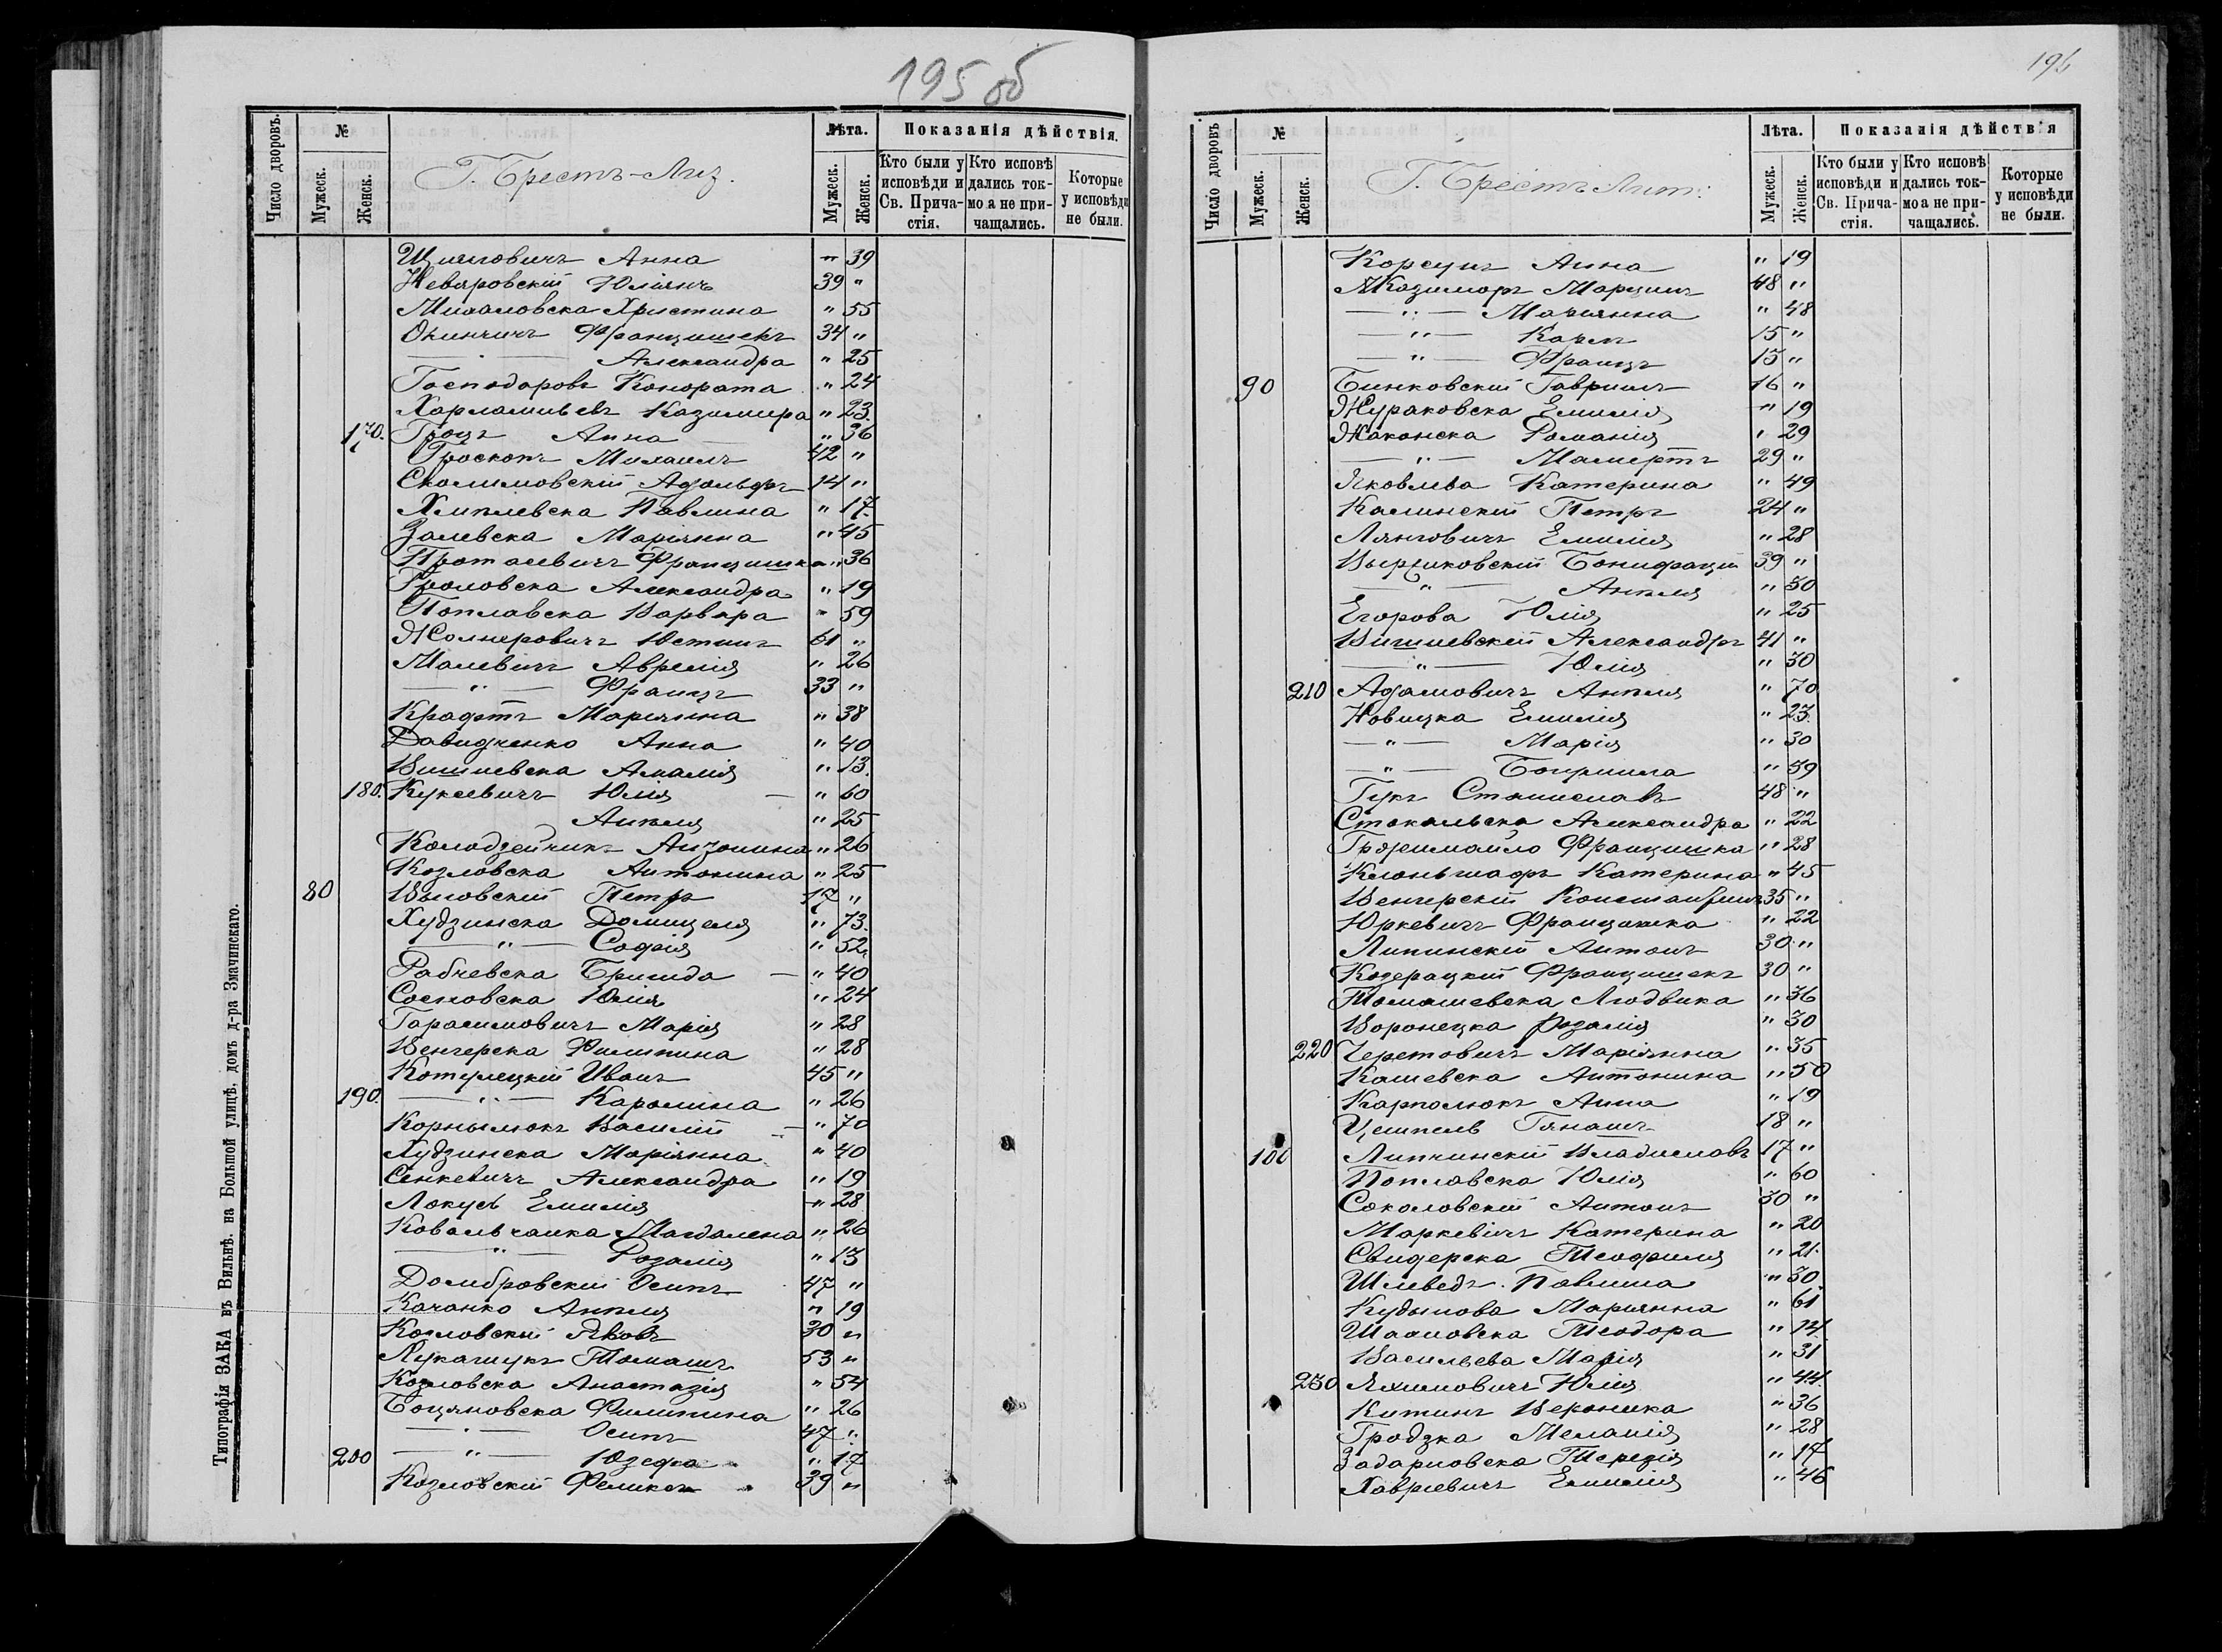 195 об
Число дворовъ.
№
Мужеск.
Женск.
Г. Брестъ-Лит.
Лѣта.
Мужеск.
Женск.
Показанія дѣйствія.
Кто были у исповѣди и Св. Прича-стія.
Кто исповѣдались ток-мо а не при-чащались.
Которые у исповѣди не были.
Анна " 39
Неверовскій Юліянъ 39 "
Михаловска Христина " 55
Окинчичъ Францишекъ 34 "
— " — Александра " 25
Господаровъ Конората " 24
Харлампьевъ Казимира " 23.
170. Гроцъ Анна " 36
Проскопъ Михаилъ 42 "
Сколимовскій Адольфъ 14 "
Хмплевска Павлина " 17.
Залевска Маріянна " 45
Протасевичъ Францишка " 36
Гроловска Александра " 19
Поплавска Варвара " 59
Жолнеровичъ Юстинъ 61 "
Малевичъ Аврелія " 26
— " — Францъ 33 "
Крафтъ Маріянна " 38
Давидченко Анна " 40
Вишневска Амалія " 13.
180. Кукевичъ Юлія " 60
Анеля " 25
Колодзейчикъ Антонина " 26
Козловска Антонина " 25
80 Петръ 17 "
Худзинска Домицеля " 73.
— " — Софія " 52
Рабчевска Бригида " 40
Сосновска Юлія " 24
Гарасимовичъ Марія " 28
Венгерска Филипина " 28
Котулецкій Иванъ 45 "
190. — " — Каролина " 26
Корнылюкъ Василій " 70
Худзинска Маріянна " 40
Сенкевичъ Александра " 19
Локусъ Емилія " 28
Ковальчашка Магдалена " 26
— " — Розалія " 13
Домбровскій Осипъ 47 "
Качанко Анеля " 19
Козловскій Яковъ 30 "
Лукашукъ Томашъ 53 "
Козловска Анастазія " 54
Боцяновска Филипина " 26
— " — Осипъ 47 "
200 — " — Юзефа " 17
Козловскій Феликсъ 39 "
Типографія ЗАКА въ Вильнѣ. на Большой улицѣ, домъ д-ра Змачинскаго.
196
Число дворовъ
№
Мужеск.
Женск.
Г. Брестъ Лит:
Лѣта.
Мужеск.
Женск.
Показанія дѣйствія
Кто были у исповѣди и Св. Прича-стія.
Кто исповѣдались ток-мо а не при-чащались.
Которые у исповѣди не были.
Корсунъ Анна " 19
Марцинъ 48 "
— " — Маріянна " 48
— " — Карлъ 15 "
— " — Францъ 13 "
90 Бинковскій Гавріилъ 16 "
Жураковска Емилія " 19
Жаконска Романія " 29
— " — Мамертъ 29 "
Яковлева Катерина " 49
Калинскій Петръ 24 "
Лянговичъ Емилія " 28
Выржиковскій Бонифацій 39 "
— " — Анеля " 30
Егорова Юлія " 25
Вишневскій Александръ 41 "
— " — Юлія " 30
210 Адамовичъ Анеля " 70
Новицка Емилія " 23.
— " — Марія " 30
— " — " 39
Гукъ Станиславъ 48 "
Стокальска Александра " 22
Гржималло Францишка " 28
Катерина " 45
Венгерскій Константинъ 35 "
Юркевичъ Францишка " 22
Липинскій Антонъ 30 "
Кодерацкій Францишекъ 30 "
Томашевска Людвика " 36
Воронецка Розалія " 30
220 Черетовичъ Маріянна " 35
Кашевска Антонина " 50
Карполюкъ Анна " 19
Цемпель 18 "
100 Липчинскій Владиславъ 17 "
Поплавска Юлія " 60
Соколовскій Антонъ 30 "
Маркевичъ Катерина " 20
Свидерска Теофиля " 21.
Шмведъ Павлина " 30
Кудынова Маріянна " 61
Теодора " 14
Васильева Марія " 31
230 Яхимовичъ Юлія " 44.
Китинъ Вероника " 36
Гродзка Меланія " 28
Задарновска Терезія " 17
Хавріевичъ Емилія " 46